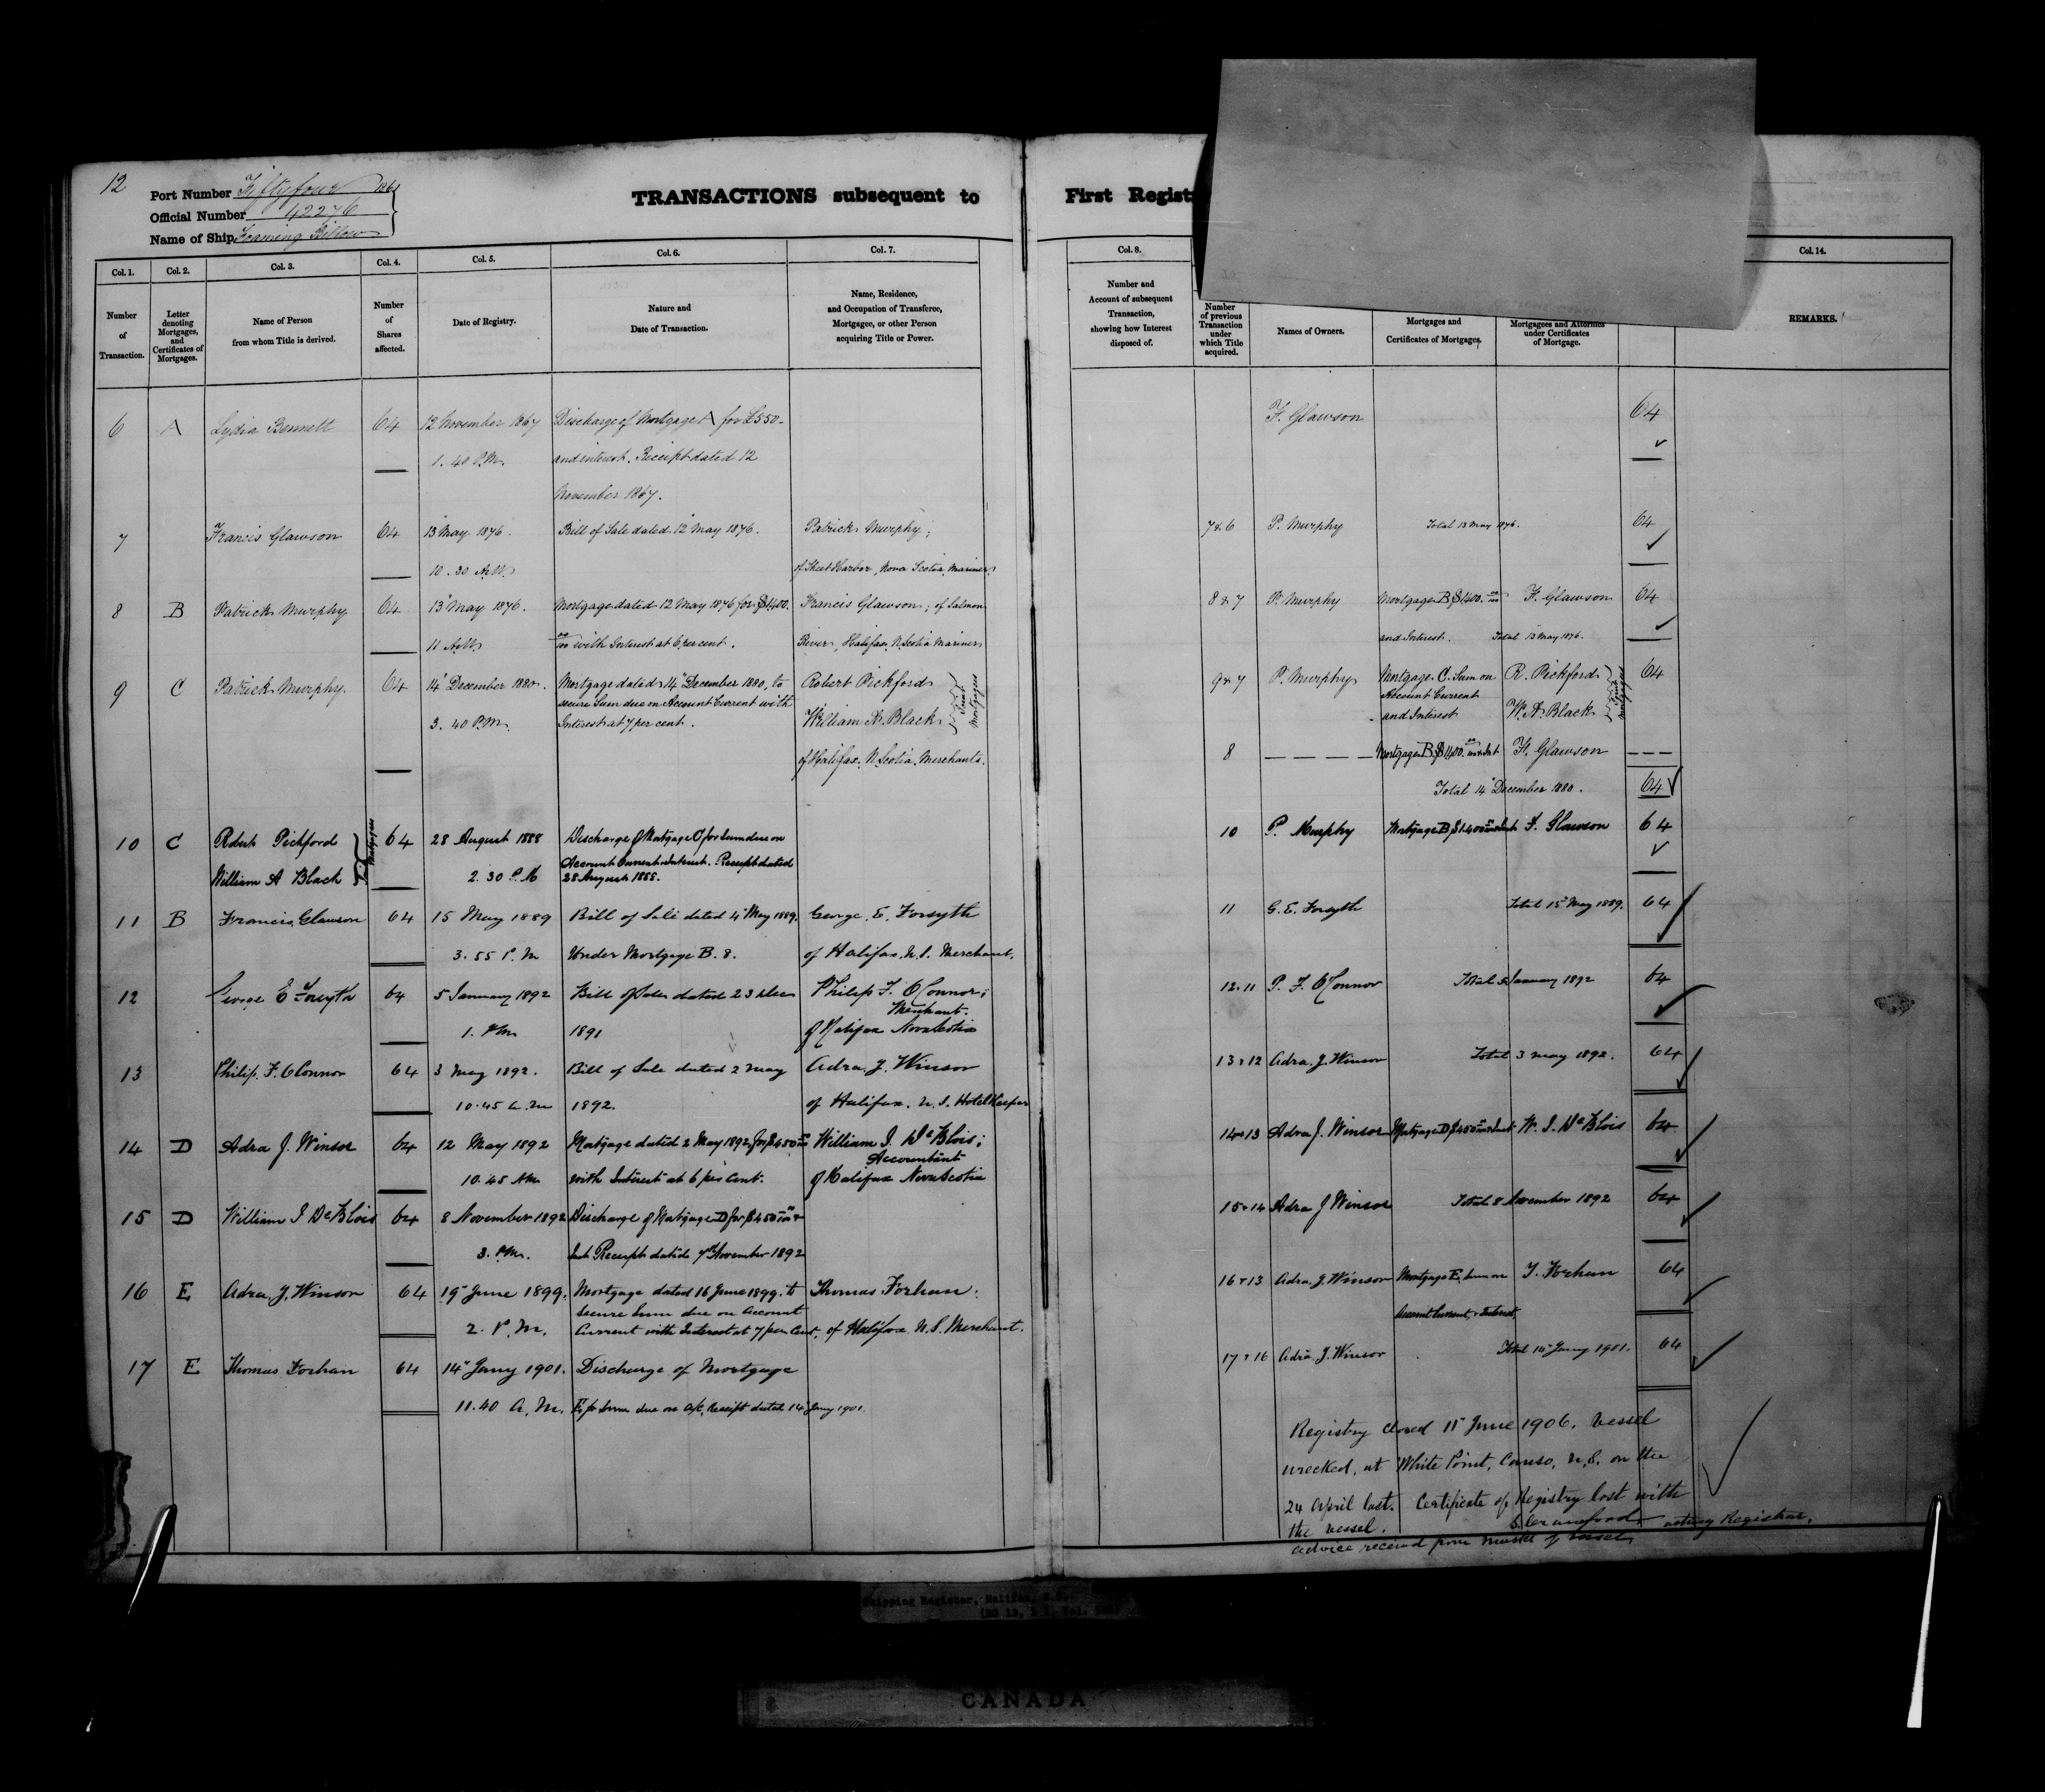 12
Port Number Fiftyfour 186
Official Number 42276
Name of Ship Foaming Billow
TRANSACTIONS subsequent to
Col. 1. Col. 2. Col. 3. Col. 4. Col. 5. Col. 6. Col. 7.
Number of Transaction.
Letter denoting Mortgages, and Certificates of Mortgages.
Name of Person from whom Title is derived.
Number of Shares affected.
Date of Registry.
Nature and Date of Transaction.
Name, Residence, and Occupation of Transferee, Mortgagee, or other Person acquiring Title or Power.
6 A Lydia Bennett 64 12 November 1867 Discharge of Mortgage A for £550-
1. 40 P.M. and interest. Receipt dated 12
November 1867.
7 Francis Glawson 64 13 May 1876. Bill of Sale dated 12 May 1876. Patrick Murphy;
10. 30 A.M. of Sheet Harbor, Nova Scotia, Mariner.
8 B Patrick Murphy 64 13 May 1876. Mortgage dated 12 May 1876 for $1400. Francis Glawson; of Salmon
11 A.M. 00/100 with Interest at 6 per cent. River, Halifax, N. Scotia Mariner
9 C Patrick Murphy. 64 14 December 1880. Mortgage dated 14 December 1880, to Robert Pickford
secure Sum due on Account Current with
3. 40 P.M. Interest at 7 per cent. William A. Black Joint Mortgagees
of Halifax, N. Scotia. Merchants.
10 C Robert Pickford 64 28 August 1888 Discharge of Mortgage C for Sum due on
Account Current & Interest. Receipt dated
William A Black Joint Mortgagees 2. 30 P. M 28 August 1888.
11 B Francis Glawson 64 15 May 1889 Bill of Sale dated 4 May 1889. George. E. Forsyth
3. 55 P. M Under Mortgage B. 8. of Halifax, N.S. Merchant.
12 George E Forsyth 64 5 January 1892 Bill of Sale dated 23 Dec Philip F. O'Connor;
Merchant.
1. PM 1891 of Halifax Nova Scotia
13 Philip. F. O'Connor 64 3 May 1892. Bill of Sale dated 2 May Adra. J. Winsor
10.45 A.M 1892. of Halifax. N.S. Hotel Keeper
14 D Adra J. Winsor 64 12 May 1892 Mortgage dated 2 May 1892 for $450 00/100 William I. DeBlois;
Accountant
10.45 AM with Interest at 6 per Cent. of Halifax Nova Scotia
15 D William I DeBlois 64 8 November 1892 Discharge of Mortgage D for $450 00/100 &
3. PM. Int. Receipt dated 7 November 1892
16 E Adra. J. Winsor 64 19 June 1899. Mortgage dated 16 June 1899. to Thomas Forhan.
secure Sum due on Account
2. P. M. Current with Interest at 7 per Cent. of Halifax N.S. Merchant.
17 E Thomas Forhan 64 14 Jany 1901. Discharge of Mortgage
11.40 A. M. E, for Sum due on a/c, receipt dated 14 Jany 1901.
First Regist
Col. 8. Col. 14.
Number and Account of subsequent Transaction, showing how Interest disposed of.
Number of previous Transaction under which Title acquired.
Names of Owners.
Mortgages and Certificates of Mortgages.
Mortgagees and Attornies under Certificates of Mortgage.
REMARKS.
F. Glawson 64
7 & 6 P. Murphy Total 13 May 1876. 64
8 & 7 P. Murphy Mortgage B $1400. 00/100 F. Glawson 64
and Interest. Total 13 May 1876.
9 & 7 P. Murphy Mortgage C. Sum on R. Pickford 64
Account Current
and Interest W. A. Black Joint Mortgagees
8 Mortgage B $1400. 00/100 & Int F. Glawson
Total 14 December 1880. 64
10 P. Murphy Mortgage B $1400 & Int F. Glawson 64
11 G. E. Forsyth Total 15 May 1889. 64
12. 11 P. F. O'Connor Total 5 January 1892 64
13 & 12 Adra. J. Winsor Total 3 May 1892. 64
14 & 13 Adra J. Winsor Mortgage D $450 & Int W. I. DeBlois 64
15 & 14 Adra J Winsor Total 8 November 1892 64
16 & 13 Adra. J. Winsor Mortgage E, Sum on T. Forhan 64
Account Current, & Interest,
17 & 16 Adra. J. Winsor Total 14 Jany 1901. 64
Registry closed 11 June 1906. Vessel
wrecked, at White Point, Canso, N.S. on the
24 April last. Certificate of Registry lost with
the vessel. acting Registrar.
advice received from master of vessel
Shipping Register, Halifax, N.S.
CANADA